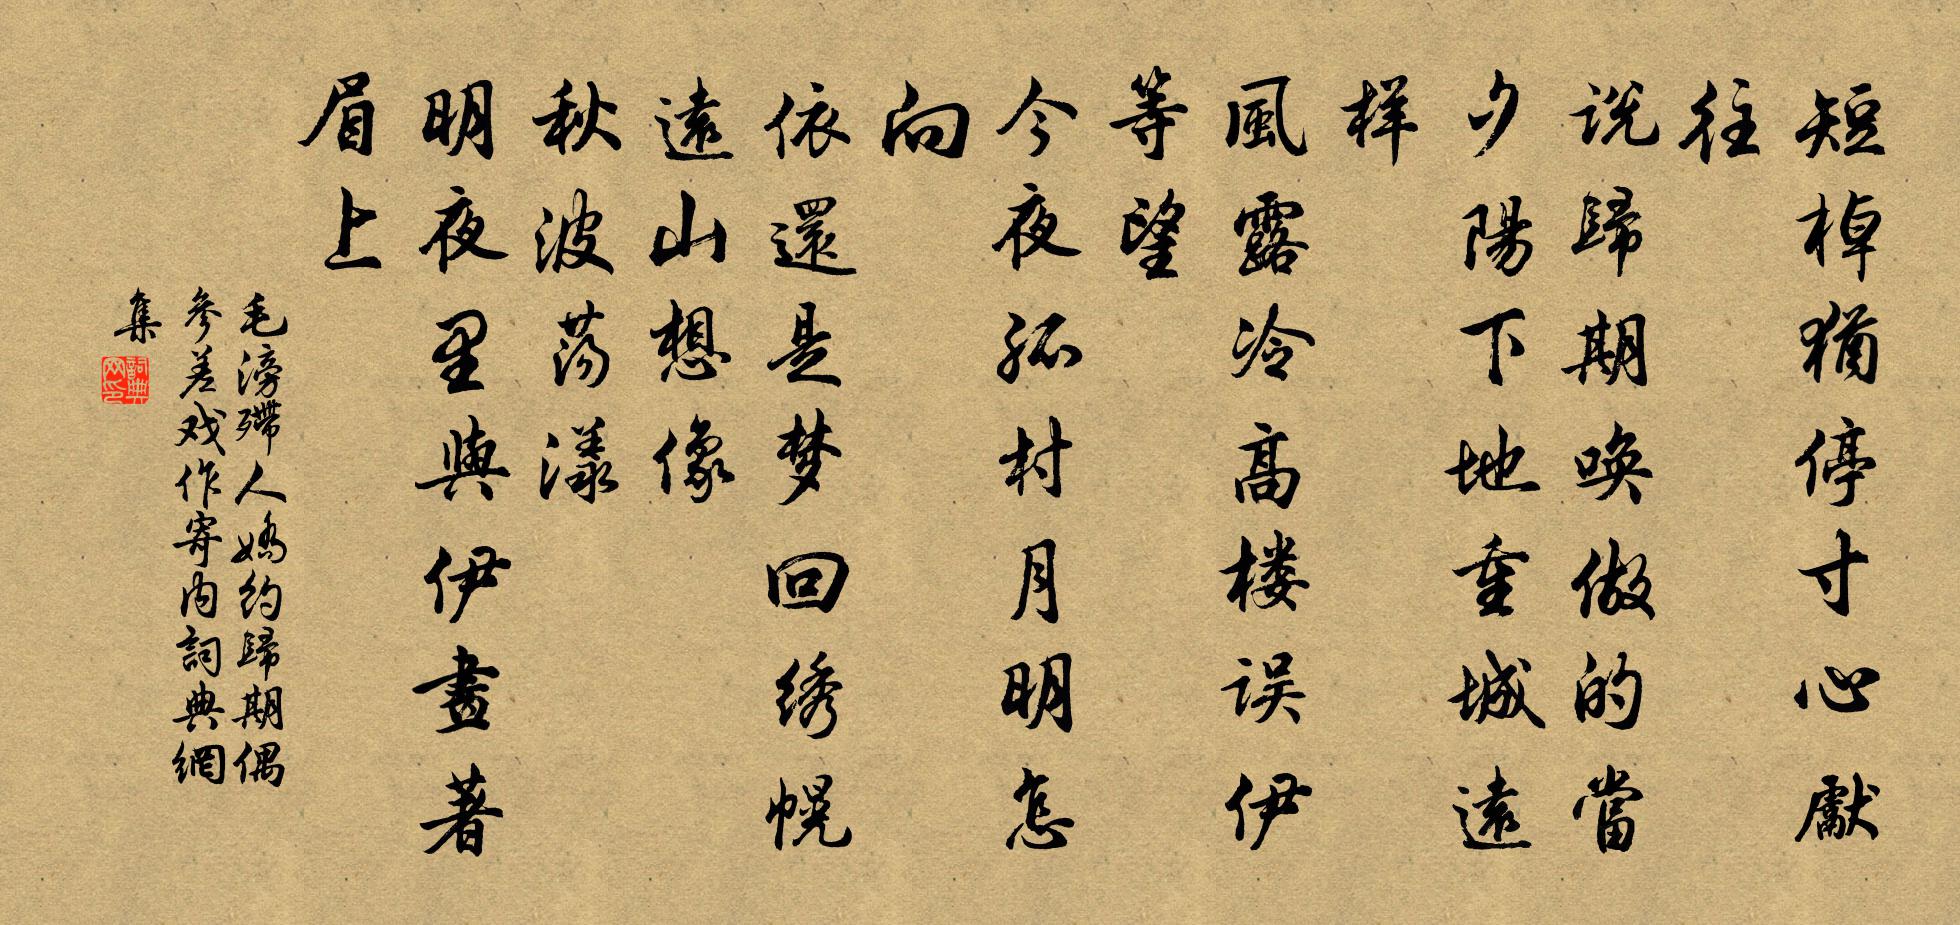 短棹猶停寸心獻
往
说歸期唤做的當
夕陽下地重城遠
样
風露冷高楼误伊
等望
今夜孤村月明怎
向
依還是梦回绣幌
遠山想像
秋波荡漾
明夜里與伊畫著
眉上
毛滂殢人嬌约歸期偶
參差戏作寄内詞典網
集
詞典网印